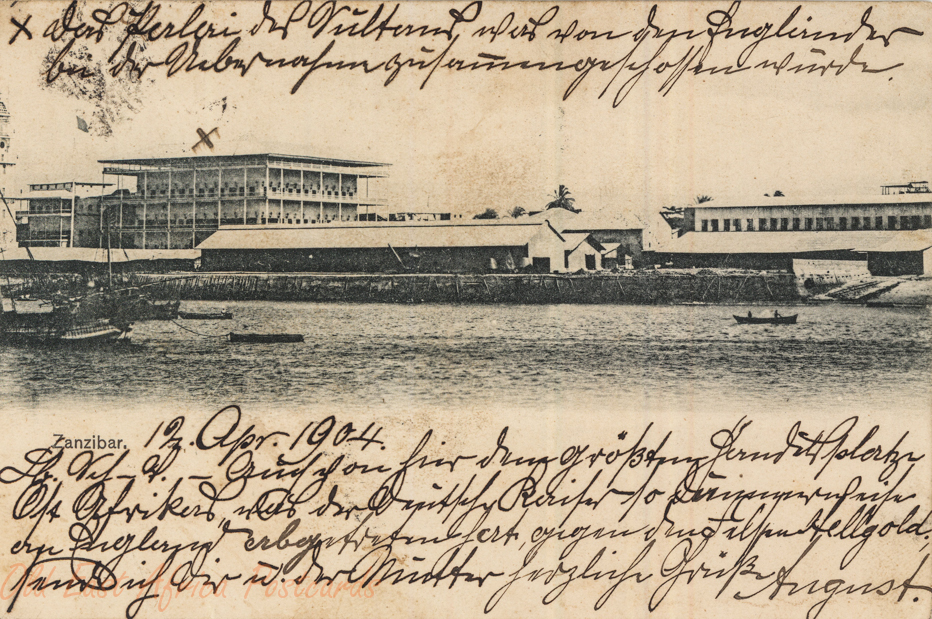 x Das Palais des Sultans, was von den Engländer
bei der Uebernahme zusammengeschossen wurde.
Zanzibar. 12. Apr. 1904.
Auch von hier dem größten Handelsplatze
Ost Afrikas, was der Deutsche Kaiser so dummerweise
an England abgetreten hat, gegen den Felsen Hellgold,
send ich Dir u. der Mutter herzliche Grüße August.
Old East Africa Postcards